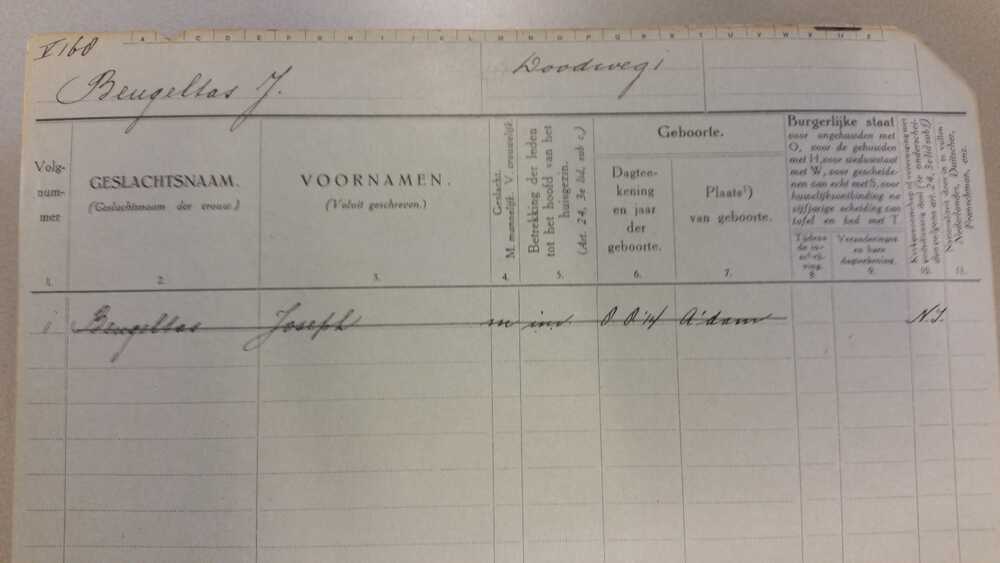 A B C D E F G H I J K L M N O P Q R S T U V W X Y Z
V168
Beugeltas J. Doodweg 1
Volg-
num-
mer
GESLACHTSNAAM.
(Geslachtsnaam der vrouw.)
VOORNAMEN.
(Voluit geschreven.)
Geslacht.
M. mannelijk. V. vrouwelijk.
Betrekking der leden
tot het hoofd van het
huisgezin.
(Art. 24, 3e lid, sub c.)
Geboorte.
Dagtee-
kening
en jaar
der
geboorte.
Plaats¹)
van geboorte.
Burgerlijke staat
voor ongehuwden met
O, voor de gehuwden
met H, voor weduwstaat
met W, voor gescheide-
nen van echt met S, voor
huwelijksontbinding na
vijfjarige scheiding van
tafel en bed met T
Tijdens
de in-
schrij-
ving.
Veranderingen
en hare
dagteekening.
Kerkgenootschap of vereeniging met
Nationaliteit door in te vullen
Nederlander, Duitscher,
Franschman, enz.
1. 2. 3. 4. 5. 6. 7. 8. 9. 10. 11.
1 Beugeltas Joseph m inw 8 8 '14 A'dam N.I.